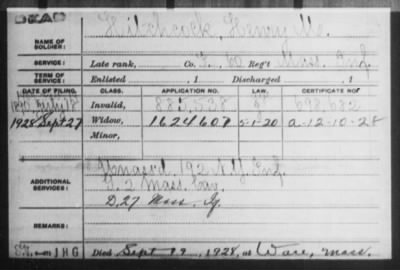 DEAD
NAME OF SOLDIER: Hitchcock, Henry M.
SERVICE: Late rank, Co. F, 60 Reg't Mass. Inf.
TERM OF SERVICE: Enlisted , 1 Discharged , 1
DATE OF FILING. CLASS. APPLICATION NO. LAW. CERTIFICATE NO.
1890 July 18 Invalid, 885,538 698,682
1928 Sept 27 Widow, 1624607 5-1-20 a-12-10-28
Minor,
ADDITIONAL SERVICES: Unass'd, 192 N.Y. Inf.
2 Mass. Cav.
D, 27 Mass.
REMARKS:
JHG Died Sept 19, 1928, at Ware, Mass.